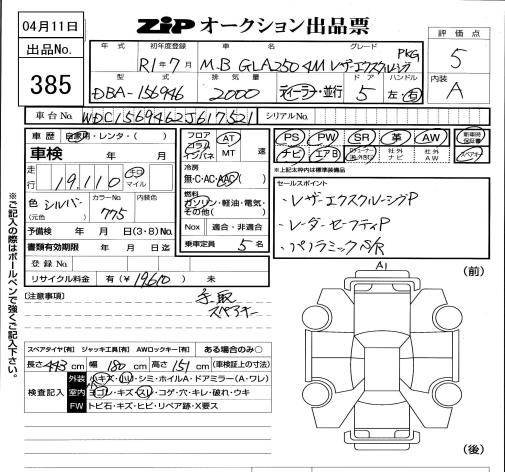 04月11日
出品No.
385
ZiP オークション出品票
年式 初年度登録 車名 グレード
R1年7月 M.B GLA250 4M レザーエクスクルーシブ PKG
型式 排気量 ドア ハンドル
DBA-156946 2000 ディーラー・並行 5 左・右
評価点
5
内装
A
車台No. WDC1569462J617521 シリアルNo.
車歴 自家用・レンタ・( )
車検 年 月
走行 19,110 キロ マイル
色 シルバー (元色) カラーNo. 775 内装色
予備検 年 月 日(3・8)No.
書類有効期限 年 月 日迄
登録No.
リサイクル料金 有(¥19610) 未
フロア コラム インパネ AT MT 速
冷房 無・C・AC・AAC
燃料 ガソリン・軽油・電気・その他( )
Nox 適合・非適合
乗車定員 5 名
PS PW SR 革 AW 新車時保証書
ナビ エアB TVチューナー(純・外・BC) 社外ナビ 社外AW スペアキー
※上記太枠内は標準装備品
セールスポイント
・レザーエクスクルーシブP
・レーダーセーフティP
・パノラミックS/R
[注意事項]
手、取
スペアキー
スペアタイヤ[有] ジャッキ工具[有] AWロックキー[有] ある場合のみ○
長さ 443 cm 幅 180 cm 高さ 151 cm (車検証上の寸法)
検査記入
外装 小キズ・凹・シミ・ホイルA・ドアミラー(A・ワレ)
室内 ヨゴレ・キズ・スレ・コゲ・穴・キレ・破れ・ウキ
FW トビ石・キズ・ヒビ・リペア跡・X要ス
A1
(前)
(後)
※ご記入の際はボールペンで強くご記入下さい。